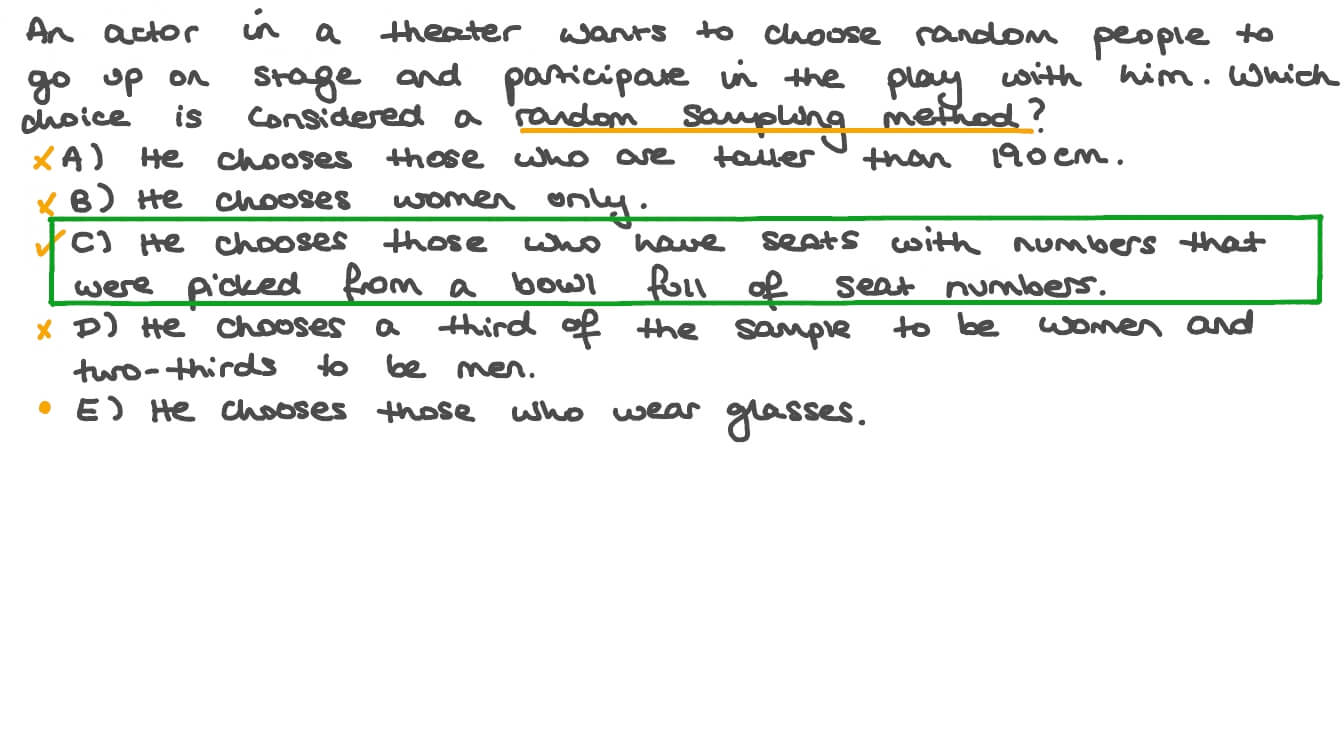 An actor in a theater wants to choose random people to
go up on stage and participate in the play with him. Which
choice is considered a random sampling method?
A) He chooses those who are taller than 190cm.
B) He chooses women only.
C) He chooses those who have seats with numbers that
were picked from a bowl full of seat numbers.
D) He chooses a third of the sample to be women and
two-thirds to be men.
E) He chooses those who wear glasses.